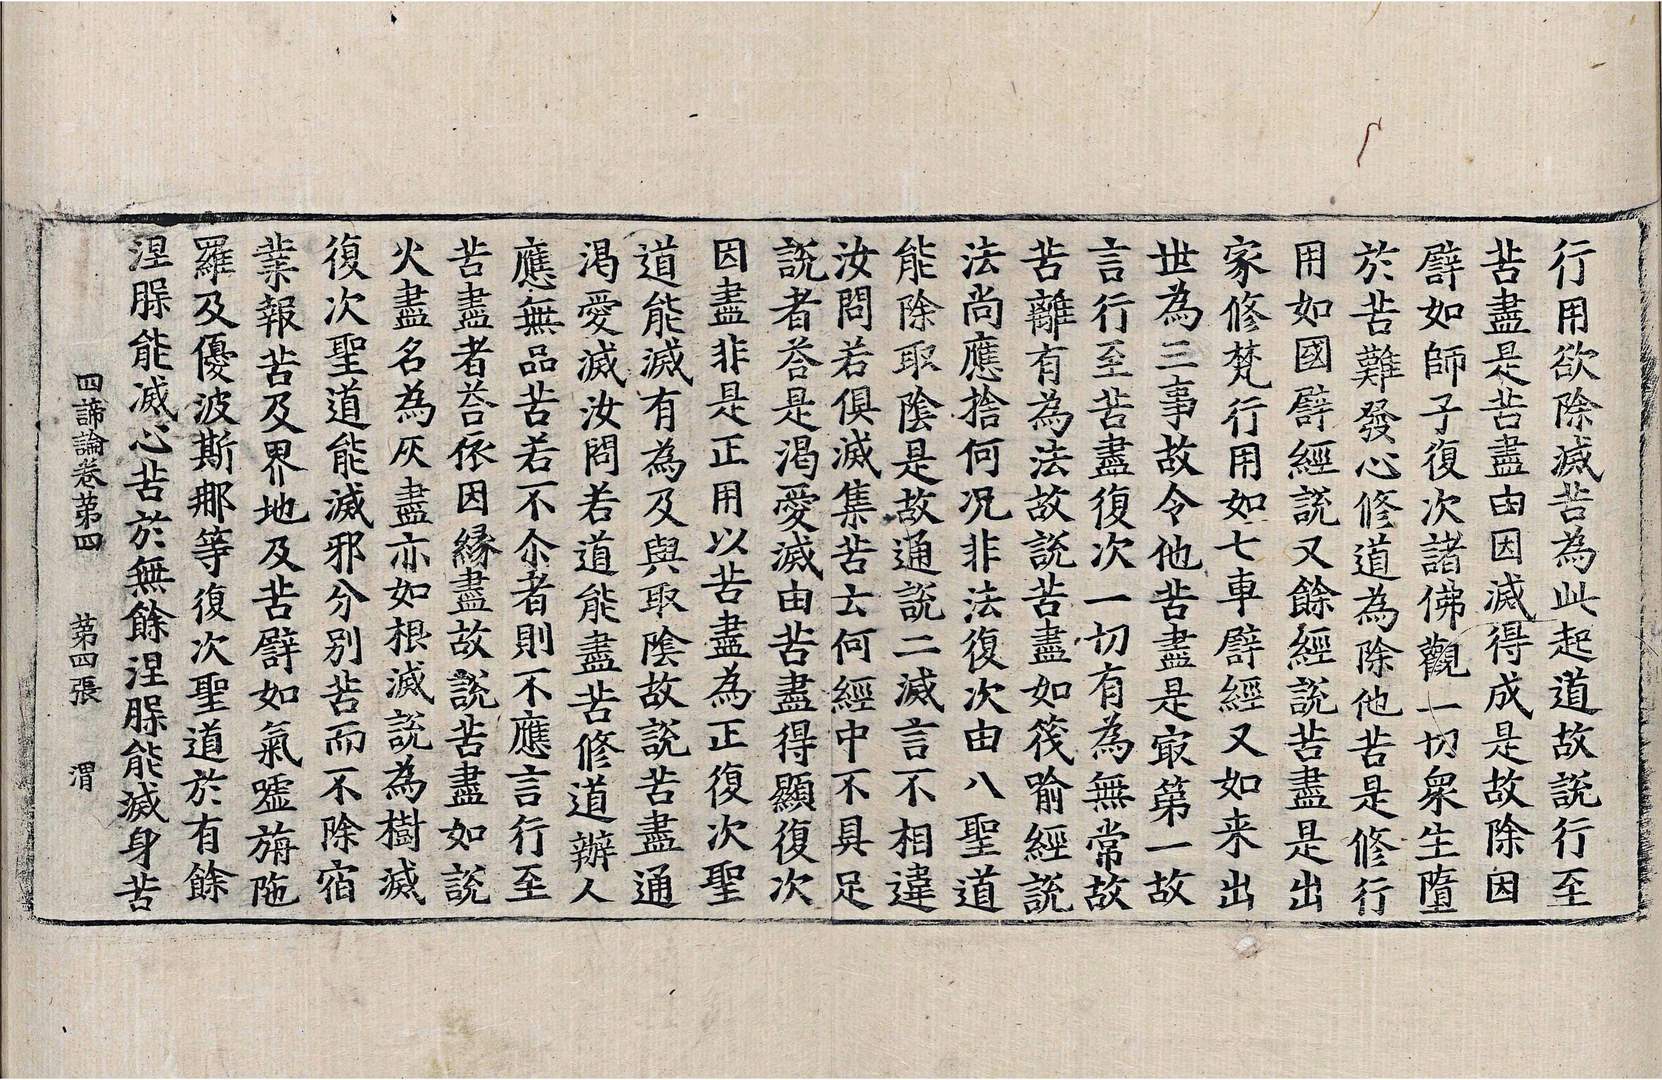 行用欲除滅苦為此起道故説行至
苦盡是苦盡由因滅得成是故除因
譬如師子復次諸佛觀一切衆生墮
於苦難發心修道為除他苦是修行
用如國譬經説又餘經説苦盡是出
家修梵行用如七車譬經又如来出
世為三事故令他苦盡是㝡第一故
言行至苦盡復次一切有為無常故
苦離有為法故説苦盡如筏喻經説
法尚應捨何况非法復次由八聖道
能除取陰是故通説二滅言不相違
汝問若俱滅集苦云何經中不具足
説者荅是渴愛滅由苦盡得顯復次
因盡非是正用以苦盡為正復次聖
道能滅有為及與取陰故説苦盡通
渴愛滅汝問若道能盡苦修道辦人
應無品苦若不尒者則不應言行至
苦盡者荅依因縁盡故説苦盡如説
火盡名為灰盡亦如根滅説為樹滅
復次聖道能滅邪分别苦而不除宿
業報苦及界地及苦譬如氣噓旃陁
羅及優波斯那等復次聖道於有餘
涅脲能滅心苦於無餘涅脲能滅身苦
四諦論卷苐四 苐四張 渭